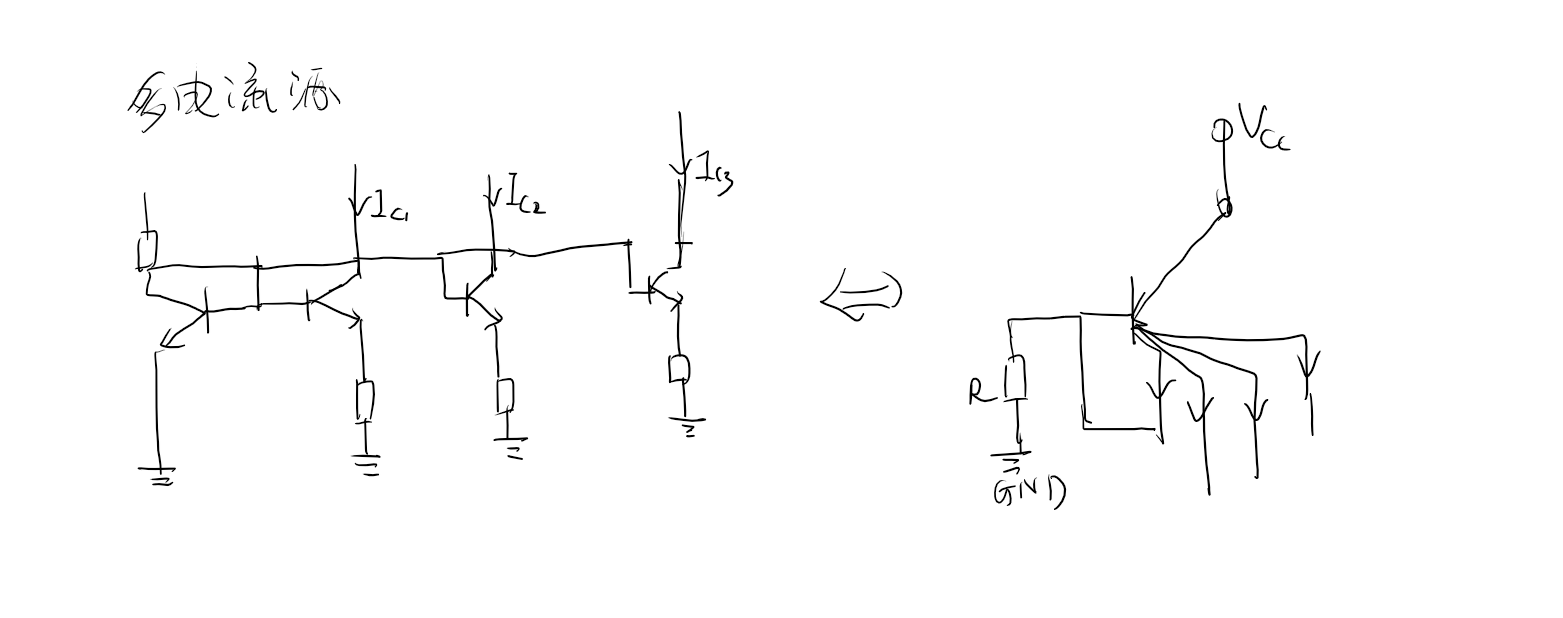 多电流源
I_C1
I_C2
I_C3
V_CC
R
GND